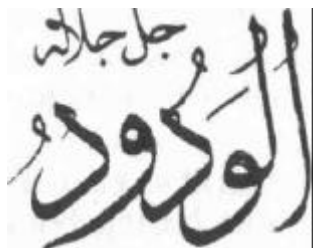 جل جلاله
الْوَدُودُ